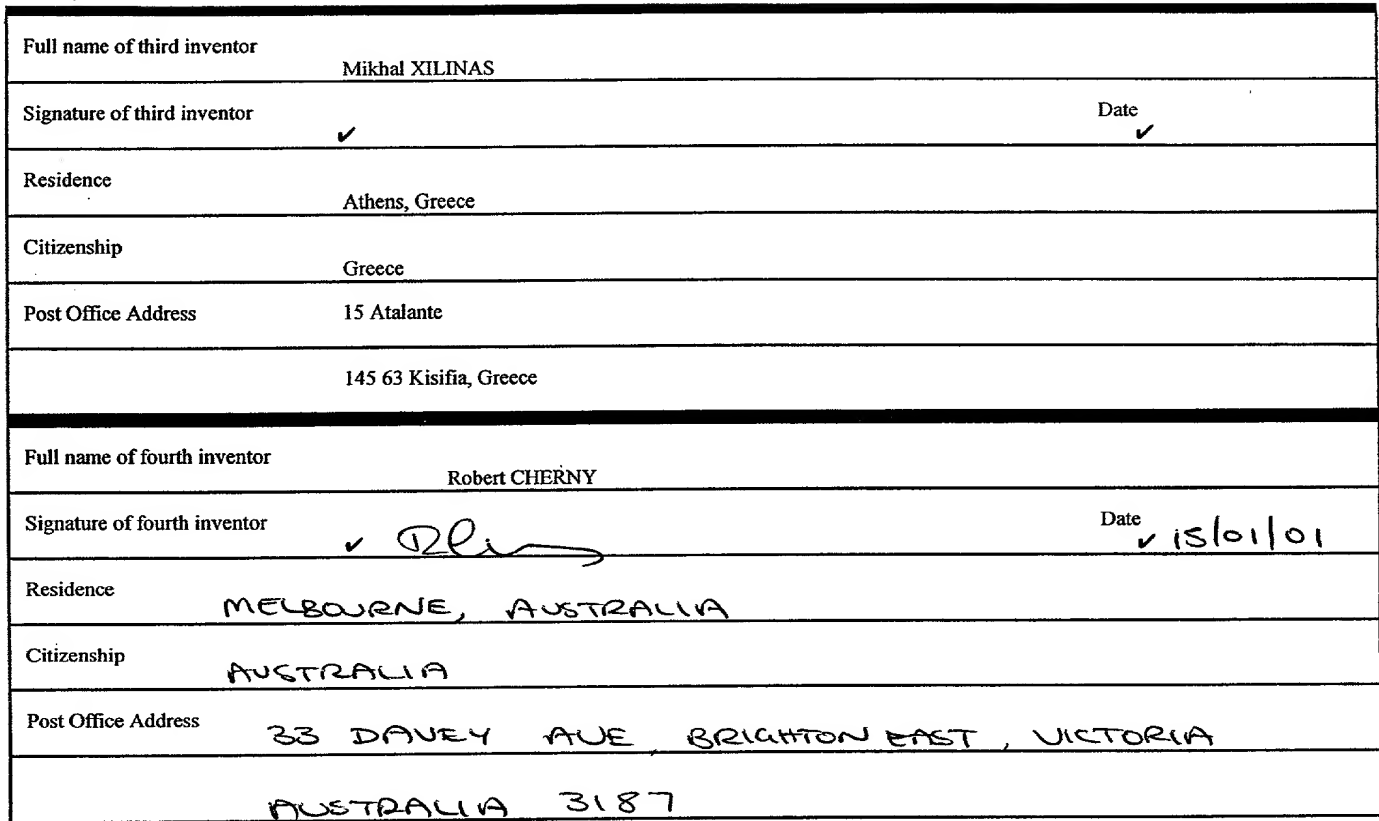 Full name of third inventor
Mikhal XILINAS
Signature of third inventor Date
✓ ✓
Residence
Athens, Greece
Citizenship
Greece
Post Office Address 15 Atalante
145 63 Kisifia, Greece
Full name of fourth inventor
Robert CHERNY
Signature of fourth inventor Date
✓ ✓ 15/01/01
Residence
MELBOURNE, AUSTRALIA
Citizenship
AUSTRALIA
Post Office Address
33 DAVEY AVE, BRIGHTON EAST, VICTORIA
AUSTRALIA 3187